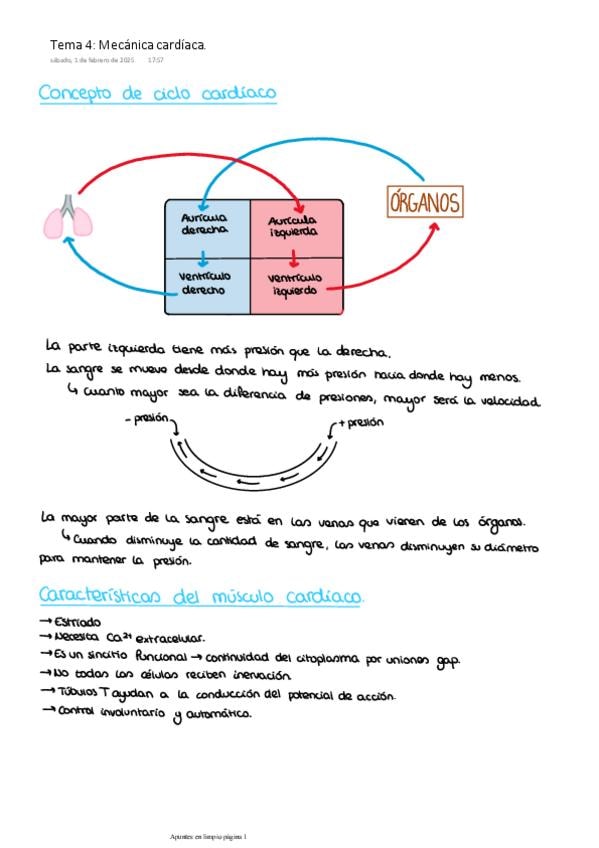 Tema 4: Mecánica cardíaca.
sábado, 1 de febrero de 2025 17:57
Concepto de ciclo cardíaco
ÓRGANOS
Aurícula
derecha
Aurícula
izquierda
Ventrículo
derecho
Ventrículo
izquierdo
La parte izquierda tiene más presión que la derecha.
La sangre se mueve desde donde hay más presión hacia donde hay menos.
↳ Cuanto mayor sea la diferencia de presiones, mayor será la velocidad
- presión
+ presión
La mayor parte de la sangre está en las venas que vienen de los órganos.
↳ Cuando disminuye la cantidad de sangre, las venas disminuyen su diámetro
para mantener la presión.
Características del músculo cardíaco.
→ Estriado
→ Necesita Ca²⁺ extracelular.
→ Es un sincitio funcional → continuidad del citoplasma por uniones gap.
→ No todas las células reciben inervación
→ Túbulos T ayudan a la conducción del potencial de acción.
→ Control involuntario y automático.
Apuntes en limpio página 1